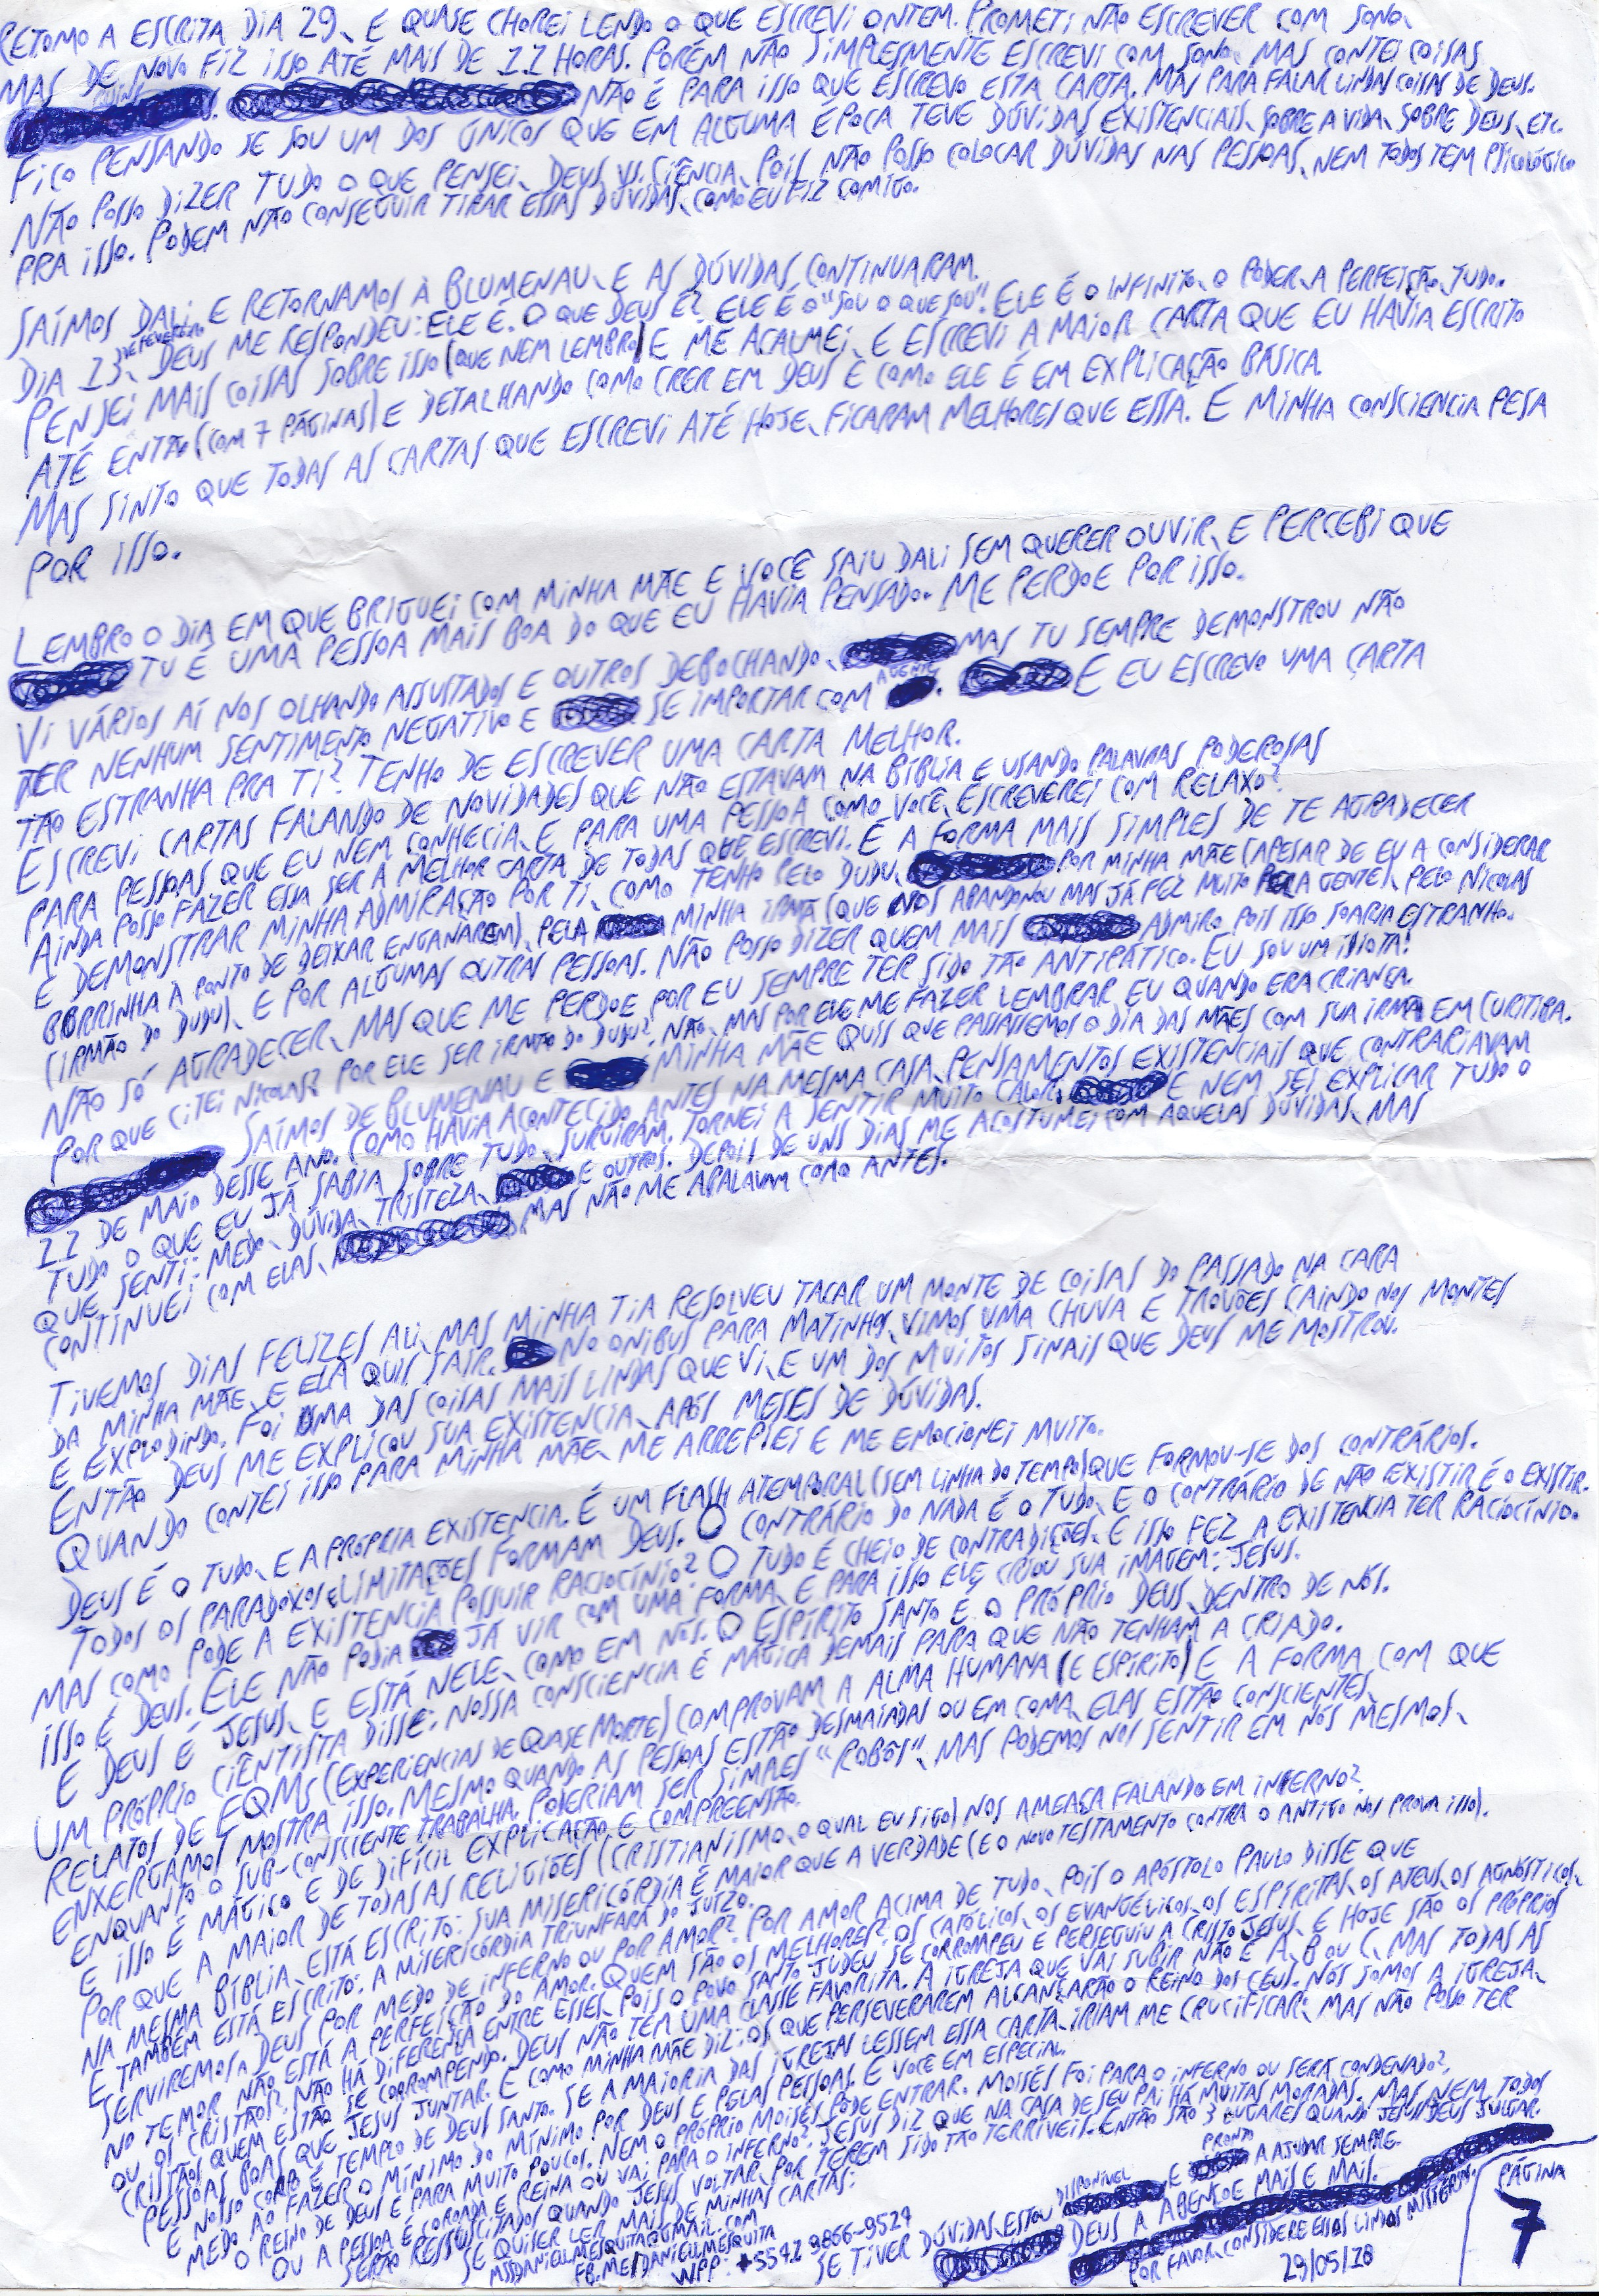 RETOMO A ESCRITA DIA 29, E QUASE CHOREI LENDO O QUE ESCREVI ONTEM. PROMETI NÃO ESCREVER COM SONO,
MAS DE NOVO FIZ ISSO ATÉ MAIS DE 11 HORAS. PORÉM NÃO SIMPLESMENTE ESCREVI COM SONO, MAS CONTEI COISAS
NÃO É PARA ISSO QUE ESCREVO ESTA CARTA, MAS PARA FALAR LINDAS COISAS DE DEUS.
FICO PENSANDO SE SOU UM DOS ÚNICOS QUE EM ALGUMA ÉPOCA TEVE DÚVIDAS EXISTENCIAIS, SOBRE A VIDA, SOBRE DEUS, ETC.
NÃO POSSO DIZER TUDO O QUE PENSEI, DEUS VS. CIÊNCIA, POIS NÃO POSSO COLOCAR DÚVIDAS NAS PESSOAS, NEM TODOS TEM PSICOLÓGICO
PRA ISSO. PODEM NÃO CONSEGUIR TIRAR ESSAS DÚVIDAS, COMO EU FIZ COMIGO.
SAÍMOS DALI, E RETORNAMOS À BLUMENAU, E AS DÚVIDAS CONTINUARAM.
DIA 13, DE FEVEREIRO DEUS ME RESPONDEU: ELE É. O QUE DEUS É? ELE É O "SOU O QUE SOU". ELE É O INFINITO, O PODER, A PERFEIÇÃO, TUDO.
PENSEI MAIS COISAS SOBRE ISSO (QUE NEM LEMBRO) E ME ACALMEI, E ESCREVI A MAIOR CARTA QUE EU HAVIA ESCRITO
ATÉ ENTÃO (COM 7 PÁGINAS) E DETALHANDO COMO CRER EM DEUS E COMO ELE É EM EXPLICAÇÃO BÁSICA.
MAS SINTO QUE TODAS AS CARTAS QUE ESCREVI ATÉ HOJE, FICARAM MELHORES QUE ESSA. E MINHA CONSCIENCIA PESA
POR ISSO.
LEMBRO O DIA EM QUE BRIGUEI COM MINHA MÃE E VOCÊ SAIU DALI SEM QUERER OUVIR, E PERCEBI QUE
TU É UMA PESSOA MAIS BOA DO QUE EU HAVIA PENSADO. ME PERDOE POR ISSO.
VI VÁRIOS AÍ NOS OLHANDO ASSUSTADOS E OUTROS DEBOCHANDO, MAS TU SEMPRE DEMONSTROU NÃO
TER NENHUM SENTIMENTO NEGATIVO E SE IMPORTAR COM A GENTE. E EU ESCREVO UMA CARTA
TÃO ESTRANHA PRA TI? TENHO DE ESCREVER UMA CARTA MELHOR.
ESCREVI CARTAS FALANDO DE NOVIDADES QUE NÃO ESTAVAM NA BÍBLIA E USANDO PALAVRAS PODEROSAS
PARA PESSOAS QUE EU NEM CONHECIA, E PARA UMA PESSOA COMO VOCÊ, ESCREVEREI COM RELAXO?
AINDA POSSO FAZER ESSA SER A MELHOR CARTA DE TODAS QUE ESCREVI. É A FORMA MAIS SIMPLES DE TE AGRADECER
E DEMONSTRAR MINHA ADMIRAÇÃO POR TI, COMO TENHO PELO DUDU, POR MINHA MÃE (APESAR DE EU A CONSIDERAR
BURRINHA À PONTO DE DEIXAR ENGANAREM), PELA MINHA IRMÃ (QUE NOS ABANDONOU MAS JÁ FEZ MUITO PELA GENTE), PELO NICOLAS
(IRMÃO DO DUDU), E POR ALGUMAS OUTRAS PESSOAS. NÃO POSSO DIZER QUEM MAIS ADMIRO, POIS ISSO SOARIA ESTRANHO.
NÃO SÓ AGRADECER, MAS QUE ME PERDOE POR EU SEMPRE TER SIDO TÃO ANTIPÁTICO. EU SOU UM IDIOTA!
POR QUE CITEI NICOLAS? POR ELE SER IRMÃO DO DUDU? NÃO, MAS POR ELE ME FAZER LEMBRAR EU QUANDO ERA CRIANÇA.
SAÍMOS DE BLUMENAU E MINHA MÃE QUIS QUE PASSASSEMOS O DIA DAS MÃES COM SUA IRMÃ EM CURITIBA,
11 DE MAIO DESSE ANO. COMO HAVIA ACONTECIDO ANTES NA MESMA CASA, PENSAMENTOS EXISTENCIAIS QUE CONTRARIAVAM
TUDO O QUE EU JÁ SABIA SOBRE TUDO, SURGIRAM. TORNEI A SENTIR MUITO CALOR, E NEM SEI EXPLICAR TUDO O
QUE SENTI: MEDO, DÚVIDA, TRISTEZA, E OUTROS. DEPOIS DE UNS DIAS ME ACOSTUMEI COM AQUELAS DÚVIDAS, MAS
CONTINUEI COM ELAS, MAS NÃO ME ABALAVAM COMO ANTES.
TIVEMOS DIAS FELIZES ALI, MAS MINHA TIA RESOLVEU TACAR UM MONTE DE COISAS DO PASSADO NA CARA
DA MINHA MÃE, E ELA QUIS SAIR. NO ONIBUS PARA MATINHOS, VIMOS UMA CHUVA E TROVÕES CAINDO NOS MONTES
E EXPLODINDO. FOI UMA DAS COISAS MAIS LINDAS QUE VI, E UM DOS MUITOS SINAIS QUE DEUS ME MOSTROU.
ENTÃO DEUS ME EXPLICOU SUA EXISTENCIA, APÓS MESES DE DÚVIDAS.
QUANDO CONTEI ISSO PARA MINHA MÃE, ME ARREPIEI E ME EMOCIONEI MUITO.
DEUS É O TUDO, E A PRÓPRIA EXISTENCIA. É UM FLASH ATEMPORAL (SEM LINHA DO TEMPO) QUE FORMOU-SE DOS CONTRÁRIOS.
TODOS OS PARADOXOS E LIMITAÇÕES FORMAM DEUS. O CONTRÁRIO DO NADA É O TUDO, E O CONTRÁRIO DE NÃO EXISTIR É O EXISTIR.
MAS COMO PODE A EXISTENCIA POSSUIR RACIOCÍNIO? O TUDO É CHEIO DE CONTRADIÇÕES, E ISSO FEZ A EXISTENCIA TER RACIOCÍNIO.
ISSO É DEUS. ELE NÃO PODIA JÁ VIR COM UMA FORMA, E PARA ISSO ELE CRIOU SUA IMAGEM: JESUS.
E DEUS É JESUS, E ESTÁ NELE, COMO EM NÓS. O ESPÍRITO SANTO É O PRÓPRIO DEUS, DENTRO DE NÓS.
UM PRÓPRIO CIENTISTA DISSE: NOSSA CONSCIENCIA É MÁGICA DEMAIS PARA QUE NÃO TENHAM A CRIADO.
RELATOS DE EQMs (EXPERIENCIAS DE QUASE MORTE) COMPROVAM A ALMA HUMANA (E ESPÍRITO) E A FORMA COM QUE
ENXERGAMOS MOSTRA ISSO. MESMO QUANDO AS PESSOAS ESTÃO DESMAIADAS OU EM COMA, ELAS ESTÃO CONSCIENTES,
ENQUANTO O SUB-CONSCIENTE TRABALHA. PODERIAM SER SIMPLES "ROBÔS", MAS PODEMOS NOS SENTIR EM NÓS MESMOS,
E ISSO É MÁGICO E DE DIFÍCIL EXPLICAÇÃO E COMPREENSÃO.
POR QUE A MAIOR DE TODAS AS RELIGIÕES (CRISTIANISMO, O QUAL EU SIGO) NOS AMEAÇA FALANDO EM INFERNO?
NA MESMA BÍBLIA, ESTÁ ESCRITO: SUA MISERICÓRDIA É MAIOR QUE A VERDADE (E O NOVO TESTAMENTO CONTRA O ANTIGO NOS PROVA ISSO).
E TAMBÉM ESTÁ ESCRITO: A MISERICÓRDIA TRIUNFARÁ DO JUÍZO.
SERVIREMOS A DEUS POR MEDO DE INFERNO OU POR AMOR? POR AMOR ACIMA DE TUDO, POIS O APÓSTOLO PAULO DISSE QUE
NO TEMOR NÃO ESTÁ A PERFEIÇÃO DO AMOR. QUEM SÃO OS MELHORES? OS CATÓLICOS, OS EVANGÉLICOS, OS ESPÍRITAS, OS ATEUS, OS AGNÓSTICOS,
OU OS CRISTÃOS? NÃO HÁ DIFERENÇA ENTRE ESSES, POIS O POVO SANTO JUDEU SE CORROMPEU E PERSEGUIU A CRISTO JESUS, E HOJE SÃO OS PRÓPRIOS
CRISTÃOS QUEM ESTÃO SE CORROMPENDO. DEUS NÃO TEM UMA CLASSE FAVORITA. A IGREJA QUE VAI SUBIR NÃO É A, B OU C, MAS TODAS AS
PESSOAS BOAS QUE JESUS JUNTAR. E COMO MINHA MÃE DIZ: OS QUE PERSEVERAREM ALCANÇARÃO O REINO DOS CÉUS. NÓS SOMOS A IGREJA,
E NOSSO CORPO É TEMPLO DE DEUS SANTO. SE A MAIORIA DAS IGREJAS LESSEM ESSA CARTA, IRIAM ME CRUCIFICAR, MAS NÃO POSSO TER
MEDO AO FAZER O MÍNIMO DO MÍNIMO POR DEUS E PELAS PESSOAS, E VOCÊ EM ESPECIAL.
O REINO DE DEUS É PARA MUITO POUCOS. NEM O PRÓPRIO MOISÉS PODE ENTRAR. MOISÉS FOI PARA O INFERNO OU SERÁ CONDENADO?
OU A PESSOA É COROADA E REINA OU VAI PARA O INFERNO? JESUS DIZ QUE NA CASA DE SEU PAI HÁ MUITAS MORADAS. MAS NEM TODOS
SERÃO RESSUSCITADOS QUANDO JESUS VOLTAR, POR TEREM SIDO TÃO TERRÍVEIS. ENTÃO SÃO 3 LUGARES QUANDO JESUS/DEUS JULGAR.
SE QUISER LER MAIS DE MINHAS CARTAS:
MSSDANIELLMESQUITA@GMAIL.COM
FB.ME/DANIELLMESQUITA
WPP: +5541 9866-9524
SE TIVER DÚVIDAS, ESTOU DISPONÍVEL E PRONTO A AJUDAR SEMPRE.
DEUS A ABENÇOE MAIS E MAIS.
POR FAVOR, CONSIDERE ESSES LINDOS MISTÉRIOS.
29/05/18
PÁGINA
7